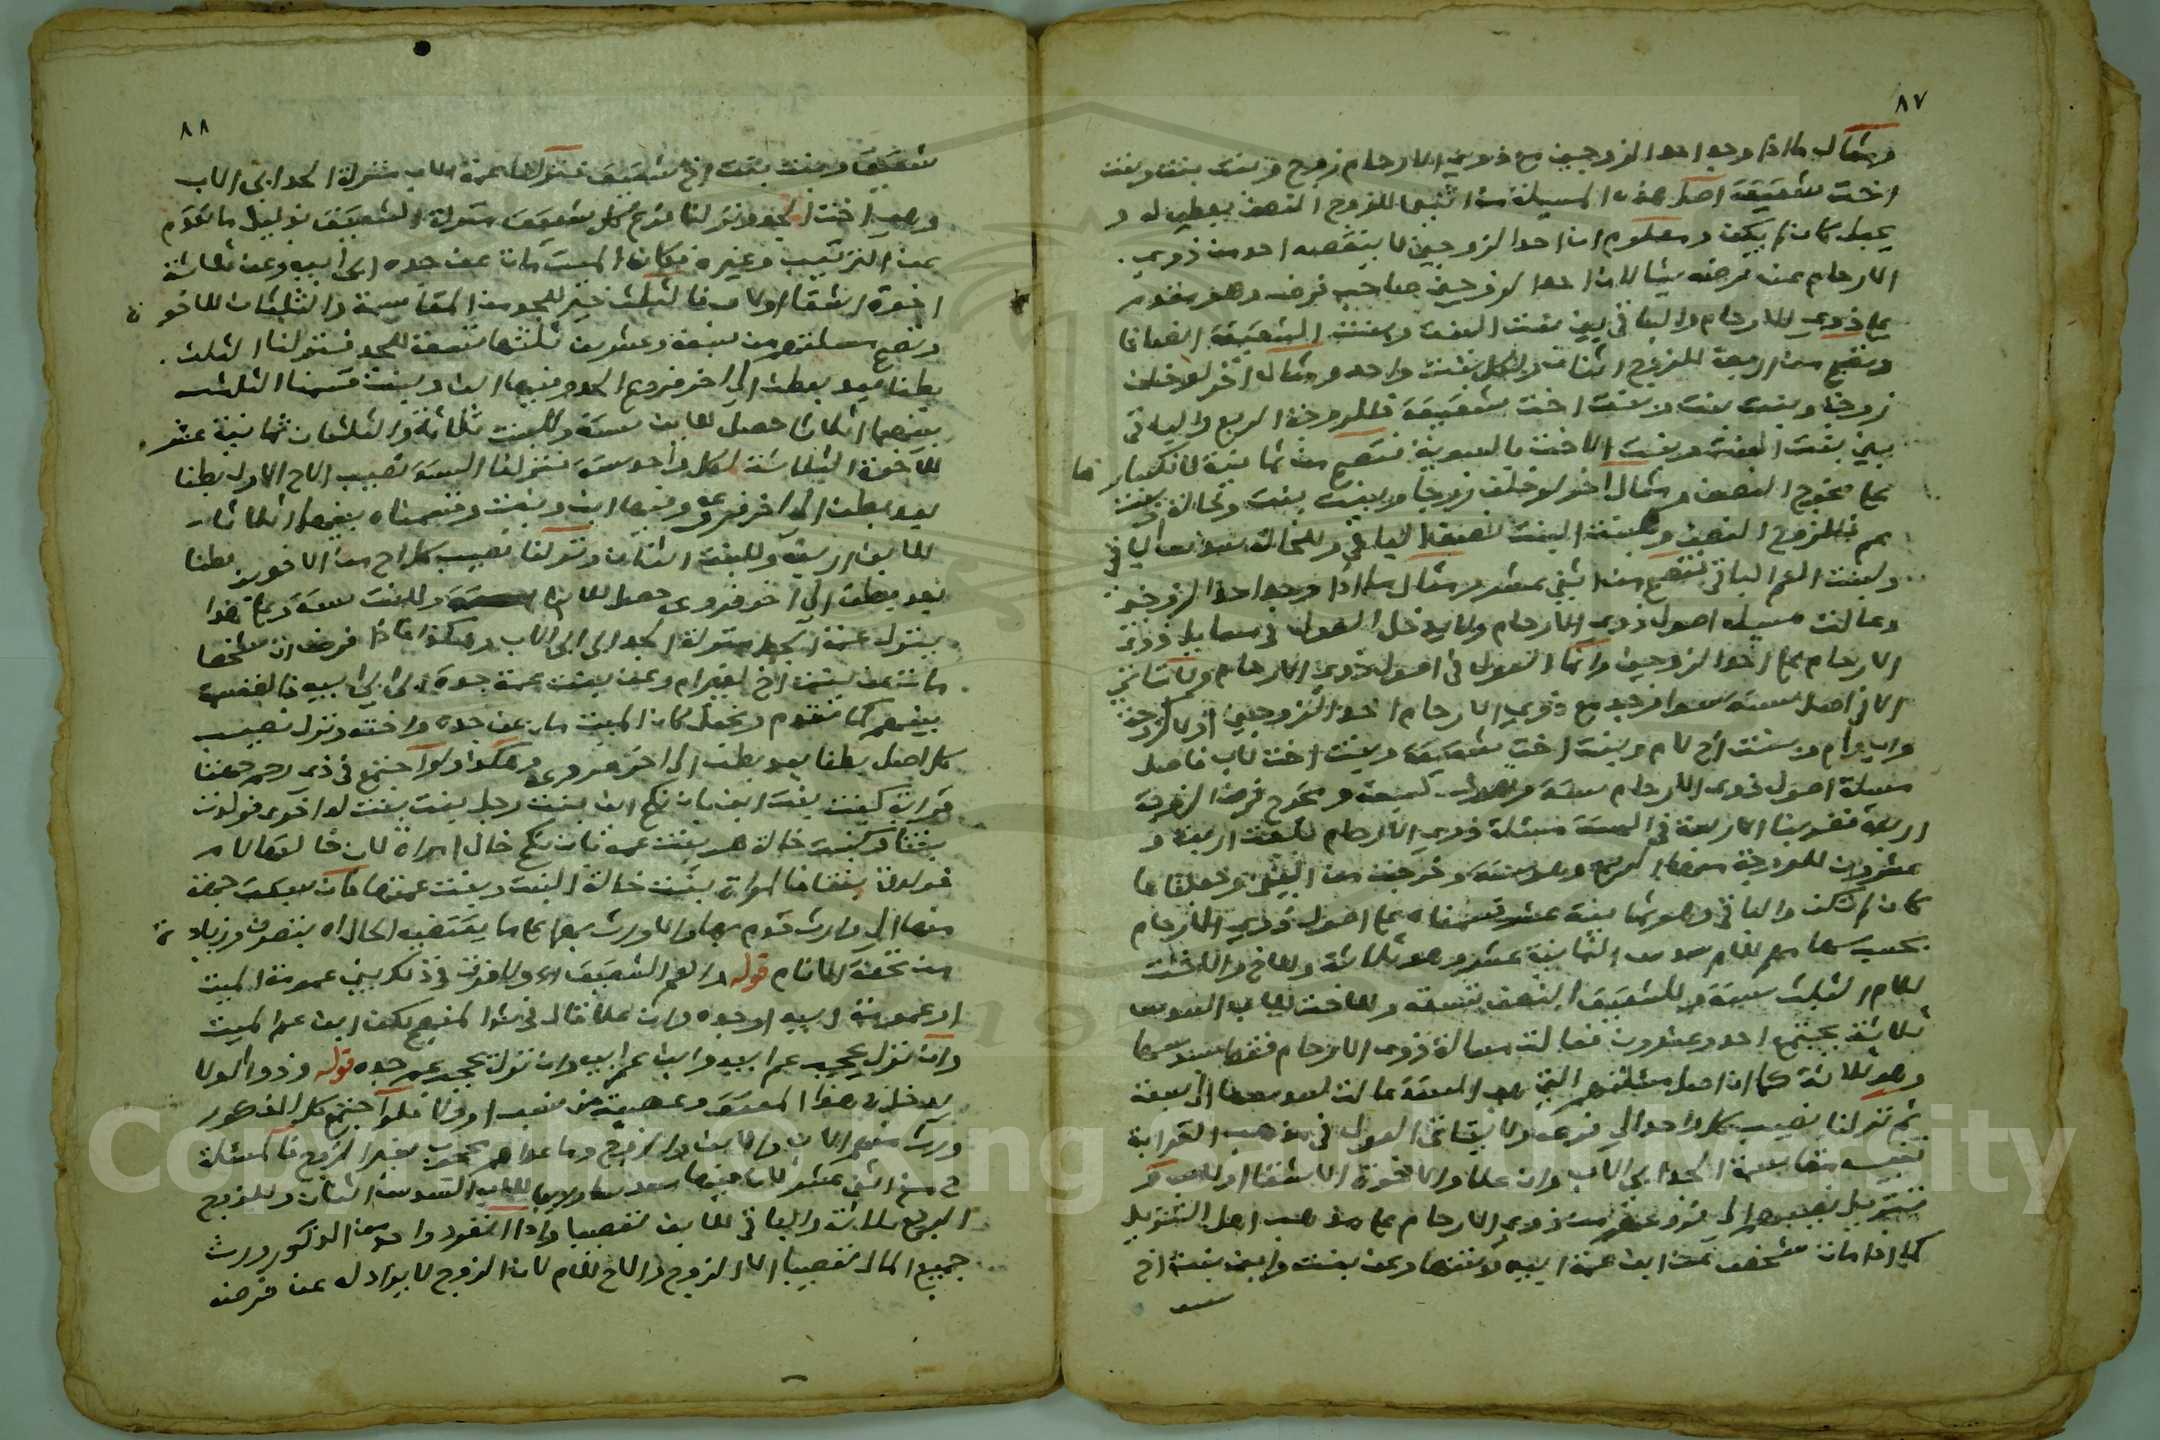 ٨٧
ومثال ما اذا وجد احد الزوجين مع ذوي الارحام زوج وبنت بنت وبنت
اخت شقيقة اصل هذه المسيلة من اثنين للزوج النصف يعطي له و
يجعل كان لم يكن ومعلوم ان احد الزوجين لا ينقصه احد من ذوي
الارحام عن فرضه شيا لان احد الزوجين صاحب فرض وهو مقدم
على ذوي الارحام والباقي بين بنت البنت وبنت الشقيقة انصافا
وتصح من اربعة للزوج اثنان ولكل بنت واحد ومثال اخر لو خلف
زوجة وبنت بنت وبنت اخت شقيقة فللزوجة الربع والباقي
بين بنت البنت وبنت الاخت بالسوية فتصح من ثمانية لانكسار
على مخرج النصف ومثال اخر لو خلف زوجا وبنت بنت وخالة وبنت
عم فللزوج النصف ولبنت البنت نصف الباقي وللخالة سدس الباقي
ولبنت العم الباقي فتصح من اثني عشر ومثال ما اذا وجد احد الزوجين
وعالت مسيلة اصول ذوي الارحام ولا يدخل العول في مسايل ذوي
الارحام على احد الزوجين وانما العول في اصول ذوي الارحام
الا في اصل ستة سوا وجد مع ذوي الارحام احد الزوجين او لا كزوجة
وابو ام وبنت اخ لام وبنت اخت شقيقة وبنت اخت لاب فاصل
مسيلة اصول ذوي الارحام ستة وتعول لسبعة ومخرج فرض الزوجة
اربعة فضربنا الاربعة في الستة مسئلة ذوي الارحام بلغت اربعة و
عشرين للزوجة منها الربع وهو ستة وخرجت من البين وجعلناها
كان لم تكن والباقي وهو ثمانية عشر قسمناه على اصول ذوي الارحام
بحسب سهامهم للام سدس الثمانية عشر وهو ثلاثة وللاخ والاخت
للام الثلث ستة وللشقيقة النصف تسعة وللاخت للاب السدس
ثلاثة يجتمع احد وعشرون فعالت مسالة ذوي الارحام
وهو ثلاثة كما ان اصل مسئلتهم التي هي الستة عالت لسدسها الى سبعة
ثم نزلنا نصيب كل واحد الى فرعه ولا يتاتى العول في مذهب القرابة
تنبيه مقاسمة الجد ابي الاب وان علا والاخوة الاشقا او للاب و
تنزيل نصيبهم الى فروعهم من ذوي الارحام على مذهب اهل التنزيل
كما اذا مات شخص عن ابن عمة ابيه وبنتها وعن بنت وابن بنت اخ
٨٨
شقيق وبنت بنت اخ شقيق فنزلنا عمة الاب منزلة الجد ابي الاب
وهي اخت الجد ونزلنا فرع كل شقيق منزلة الشقيق بدليل ما تقدم
عن الترتيب وغيره فكان الميت مات عن جده ابي ابيه وعن ثلاثة
اخوة اشقا او لاب فالثلث خير للجد من المقاسمة والثلثان للاخوة
وتصح مسئلتهم من سبعة وعشرين ثلثها تسعة للجد فنزلنا الثلث
بطنا بعد بطن الى اخر فروع الجد وفيها ابن وبنت قسمنا الثلث
بينهما اثلاثا حصل للابن ستة وللبنت ثلاثة والثلثان ثمانية عشر
للاخوة الثلاثة لكل واحد ستة نزلنا الستة نصيب الاخ الاول بطنا
بعد بطن الى اخر فروعه وفيها ابن وبنت وقسمناه بينهما اثلاثا
للابن اربعة وللبنت اثنان ونزلنا نصيب كل اخ من الاخوين بطنا
بعد بطن الى اخر فروعه حصل للابن وللبنت ستة وعلى هذا
ينزل عمة الجد منزلة الجد ابي ابي الاب وهكذا فاذا فرض ان شخصا
مات عن بنت اخ لغير ام وعن بنت عمة جده ابي ابي ابيه فالقسمة
بينهم كما تقدم وتجعل كان الميت مات عن جده واخته وتنزل نصيب
كل اصل بطنا بعد بطن الى اخر فروعه وهكذا ولو اجتمع في ذي رحم جهتا
قرابة كبنت بنت ابن بان نكح ابن بنت رجل بنت بنت له اخرى فولدت
بنتا وكبنت خالة هي بنت عمه بان نكح خال امراة لاب خالتها لام
فولدت بنتا فالمراة بنت خالة البنت وبنت عمتها فان سبقت جهة
منها الى وارث قدم بها والا ورث بها على ما يقتضيه الحال اه بتصرف وزيادة
من تحفة الانام قوله والعم الشقيق اه ولا فرق في ذلك بين عمومة الميت
او عمومة ابيه او جده وان علا قال في شرح المنهج لكن ابن عم الميت
وان نزل يحجب عم ابيه وابن عم ابيه وان نزل يحجب عم جده قوله وذو الولا
يدخل في هذا المعتق وعصبته من نسب او ولا فلو اجتمع كل الذكور
ورث منهم الاب والابن والزوج وما عداهم محجوب بغير الزوج فالمسئلة
ح من اثني عشر لان فيها سدسا وربعا للاب السدس اثنان وللزوج
الربع ثلاثة والباقي للابن تعصيبا واذا انفرد واحد من الذكور ورث
جميع المال تعصيبا الا الزوج والاخ للام لان الزوج لا يزاد له عن فرضه